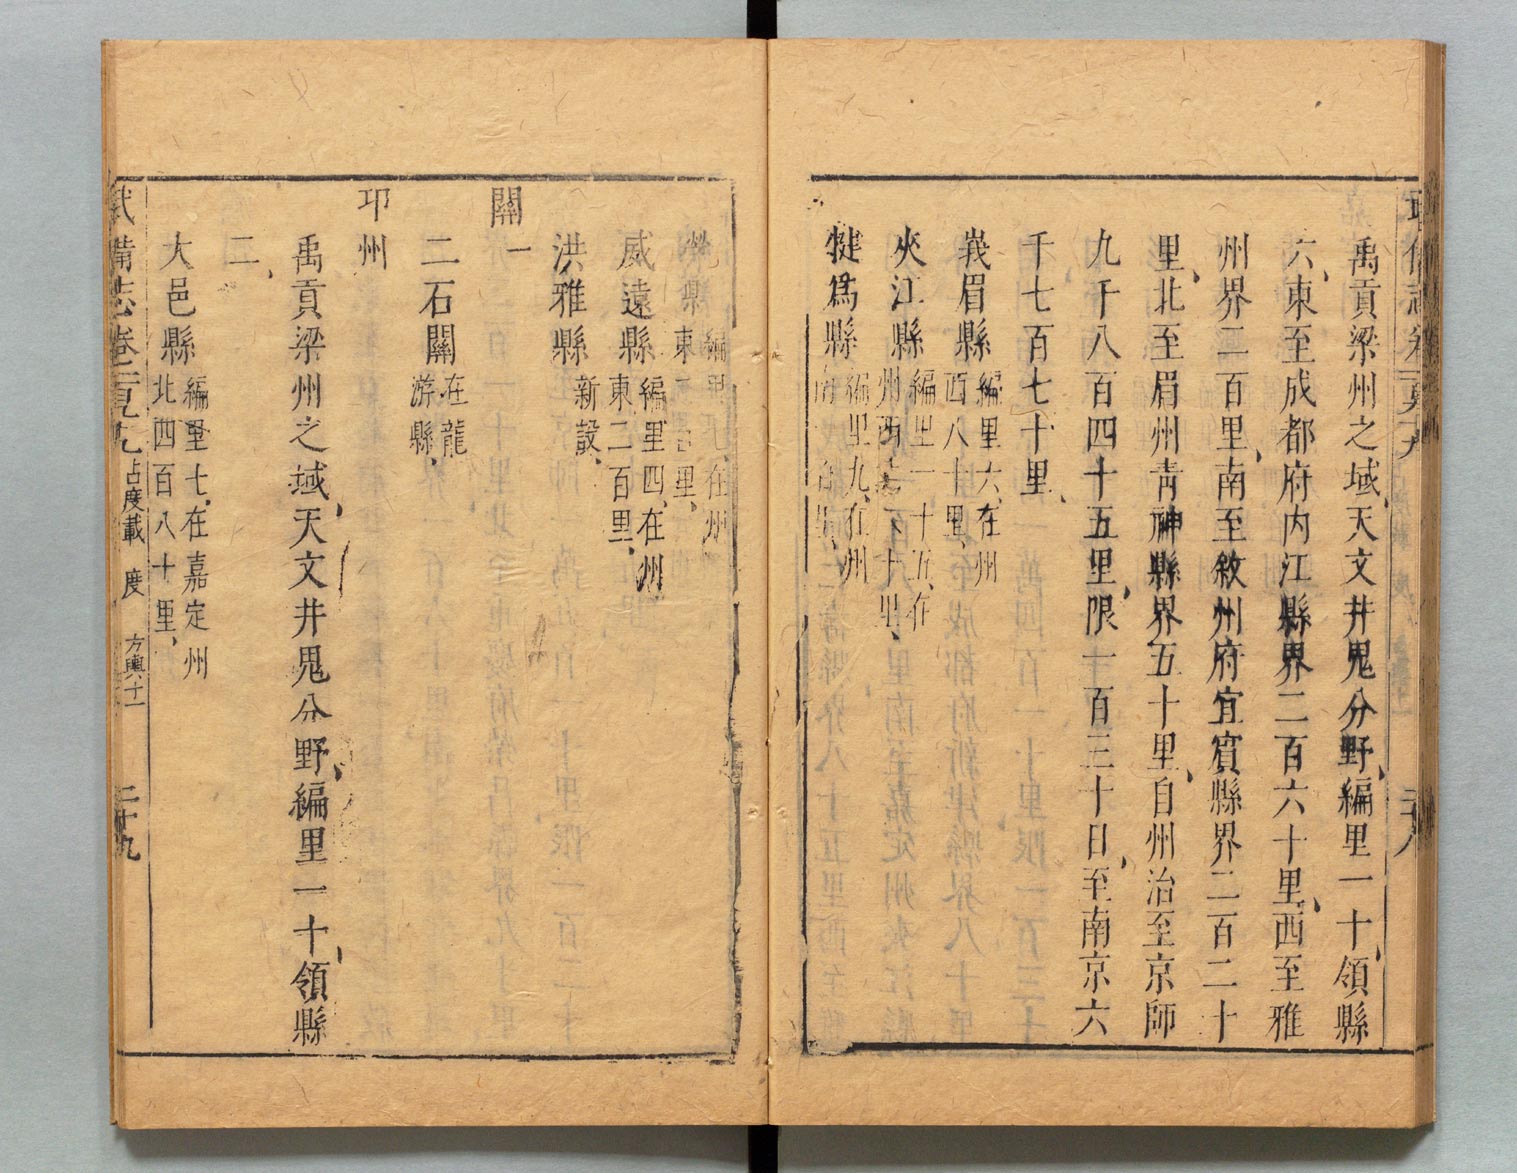 禹貢梁州之域天文井鬼分野編里一十領縣
六東至成都府内江縣界二百六十里西至雅
州界二百里南至敘州府宜賓縣界二百二十
里北至眉州青神縣界五十里自州治至京師
九千八百四十五里限一百三十日至南京六
千七百七十里
峩眉縣編里六在州
西八十里
夾江縣編里一十五在
州西
犍爲縣編里九在州
縣編里
東
威遠縣編里四在州
東二百里
洪雅縣新設
關一
二石關在龍
游縣
邛州
禹貢梁州之域天文井鬼分野編里一十領縣
二
大邑縣編里七在嘉定州
北四百八十里
武備志卷二百九 占度載 度 方輿十一 二十九